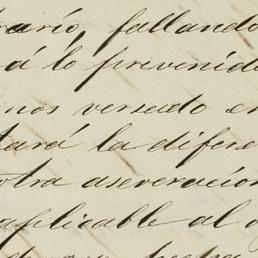 trario, fallando
á lo prevenido
nos versado en
tará la difere
otra aseveración
aplicable al o